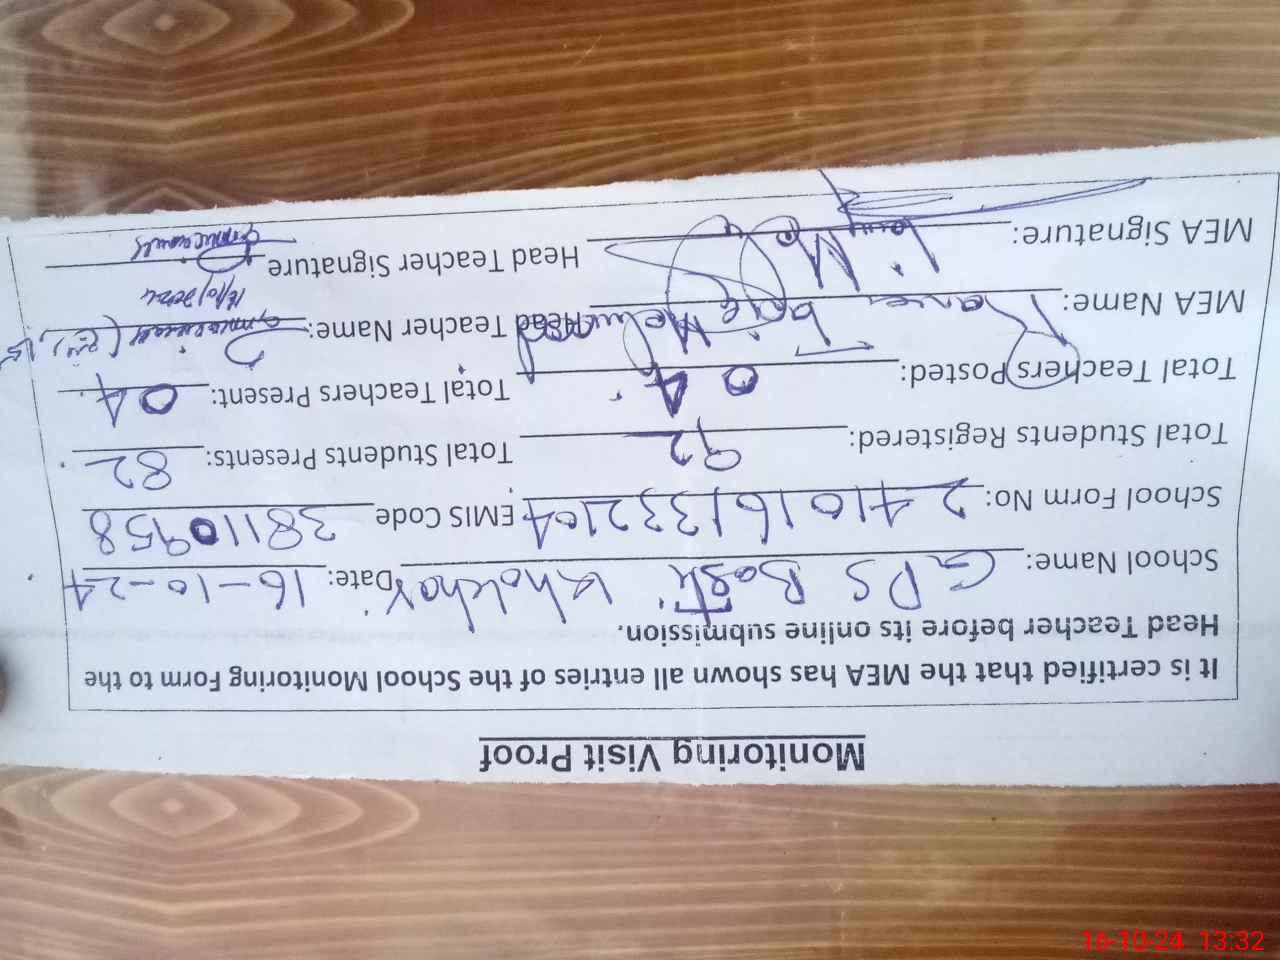 Monitoring Visit Proof
It is certified that the MEA has shown all entries of the School Monitoring Form to the
Head Teacher before its online submission.
School Name: GPS Basti Kholehar Date: 16-10-24
School Form No: 2410161332104 EMIS Code 38110958
Total Students Registered: 92 Total Students Presents: 82
Total Teachers Posted: 04 Total Teachers Present: 04
MEA Name: Tariq Mehmood Head Teacher Name:
16/10/2024
MEA Signature: Head Teacher Signature
16-10-24 13:32